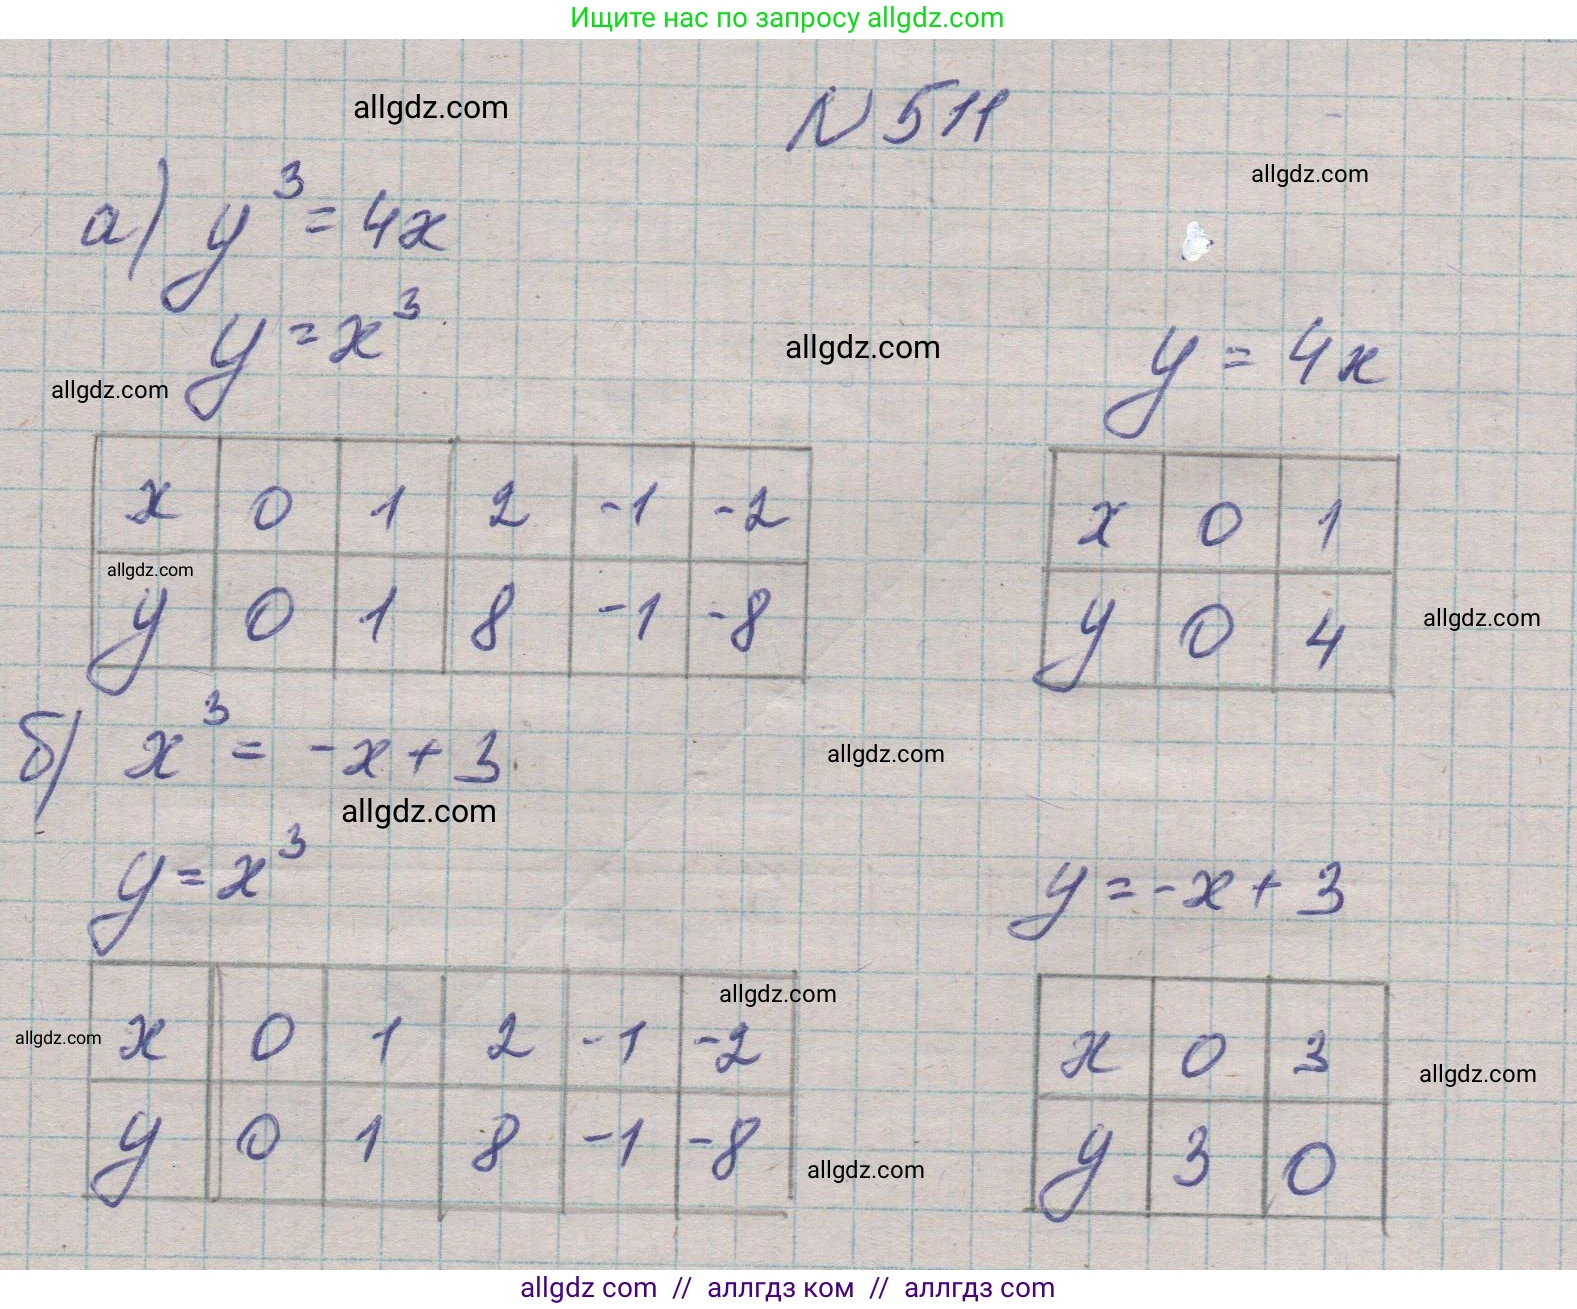 Ищите нас по запросу allgdz.com
allgdz.com
N 511
allgdz.com
а) y³ = 4x
y = x³
allgdz.com
y = 4x
allgdz.com
x 0 1 2 -1 -2
x 0 1
allgdz.com
y 0 1 8 -1 -8
y 0 4
allgdz.com
б) x³ = -x + 3
allgdz.com
allgdz.com
y = x³
y = -x + 3
allgdz.com
allgdz.com
x 0 1 2 -1 -2
x 0 3
allgdz.com
y 0 1 8 -1 -8
y 3 0
allgdz.com
allgdz com // аллгдз ком // аллгдз com